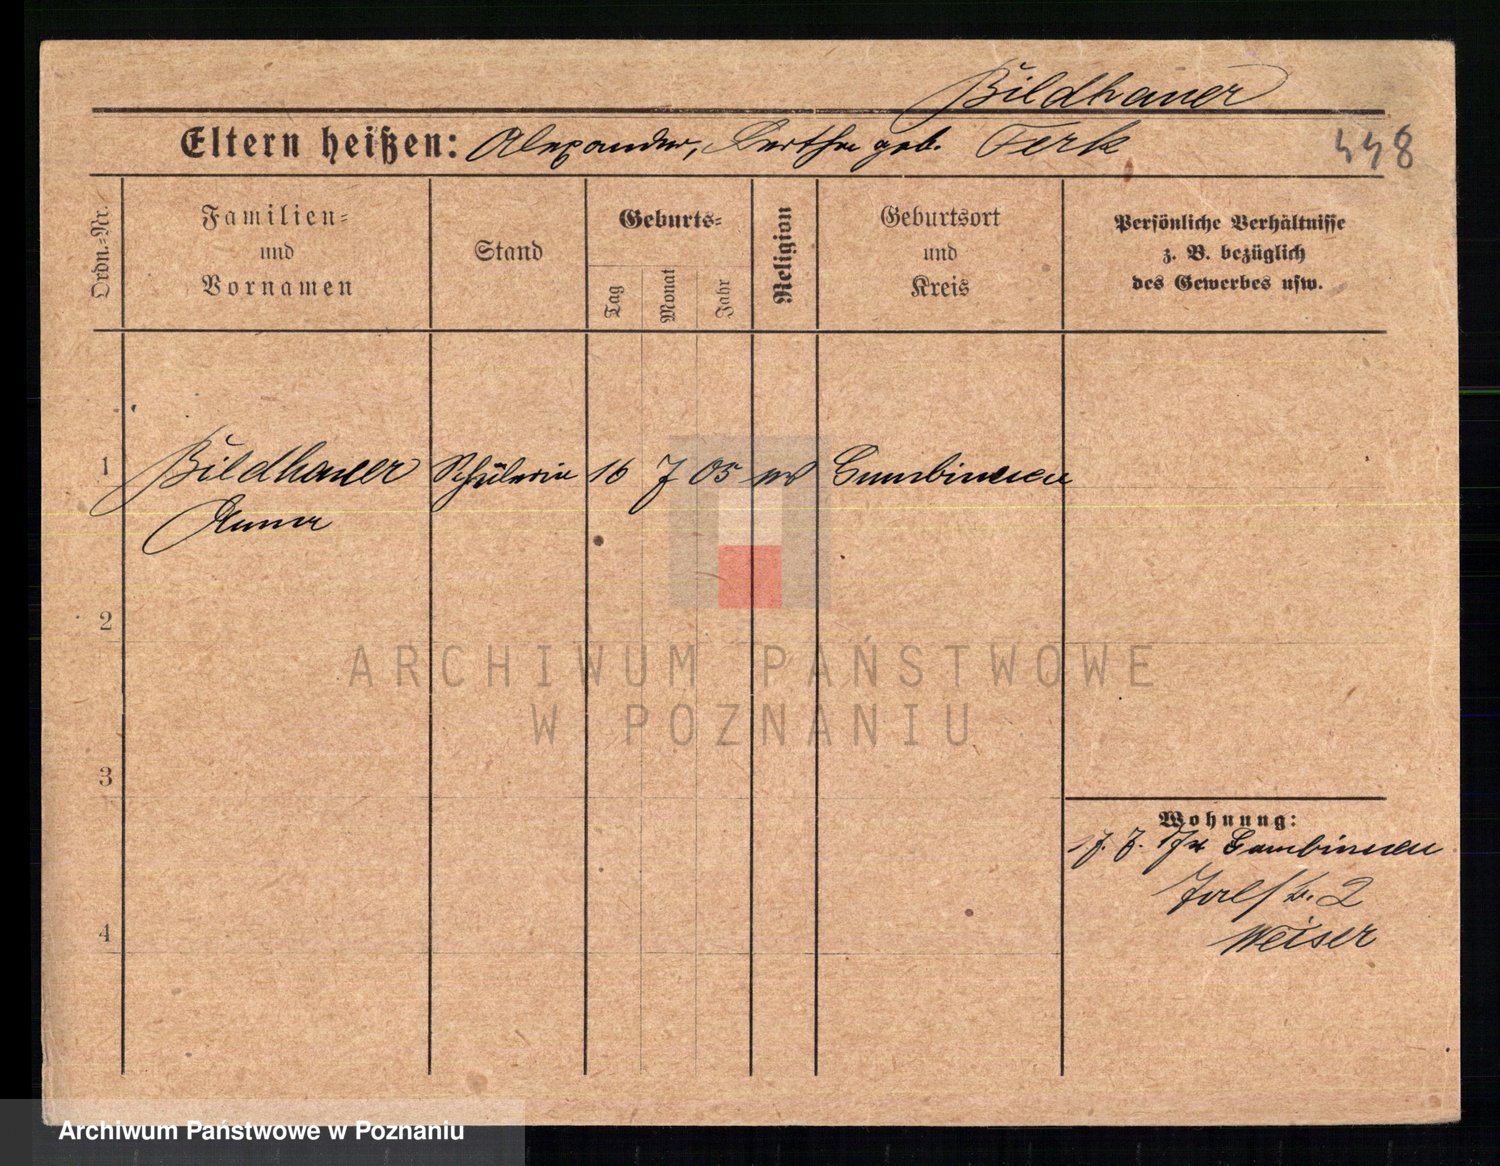 Bildhauer
Eltern heißen: Alexander, Berthe geb. Terk
448
Ordn.=Nr.
Familien=
und
Vornamen
Stand
Geburts=
Tag
Monat
Jahr
Religion
Geburtsort
und
Kreis
Persönliche Verhältnisse
z. B. bezüglich
des Gewerbes usw.
1 Bildhauer Schülerin 16 7 05 Gumbinnen
Anna
2
3
4
Wohnung:
Gumbinnen
2
Weiser
ARCHIWUM PAŃSTWOWE
W POZNANIU
Archiwum Państwowe w Poznaniu